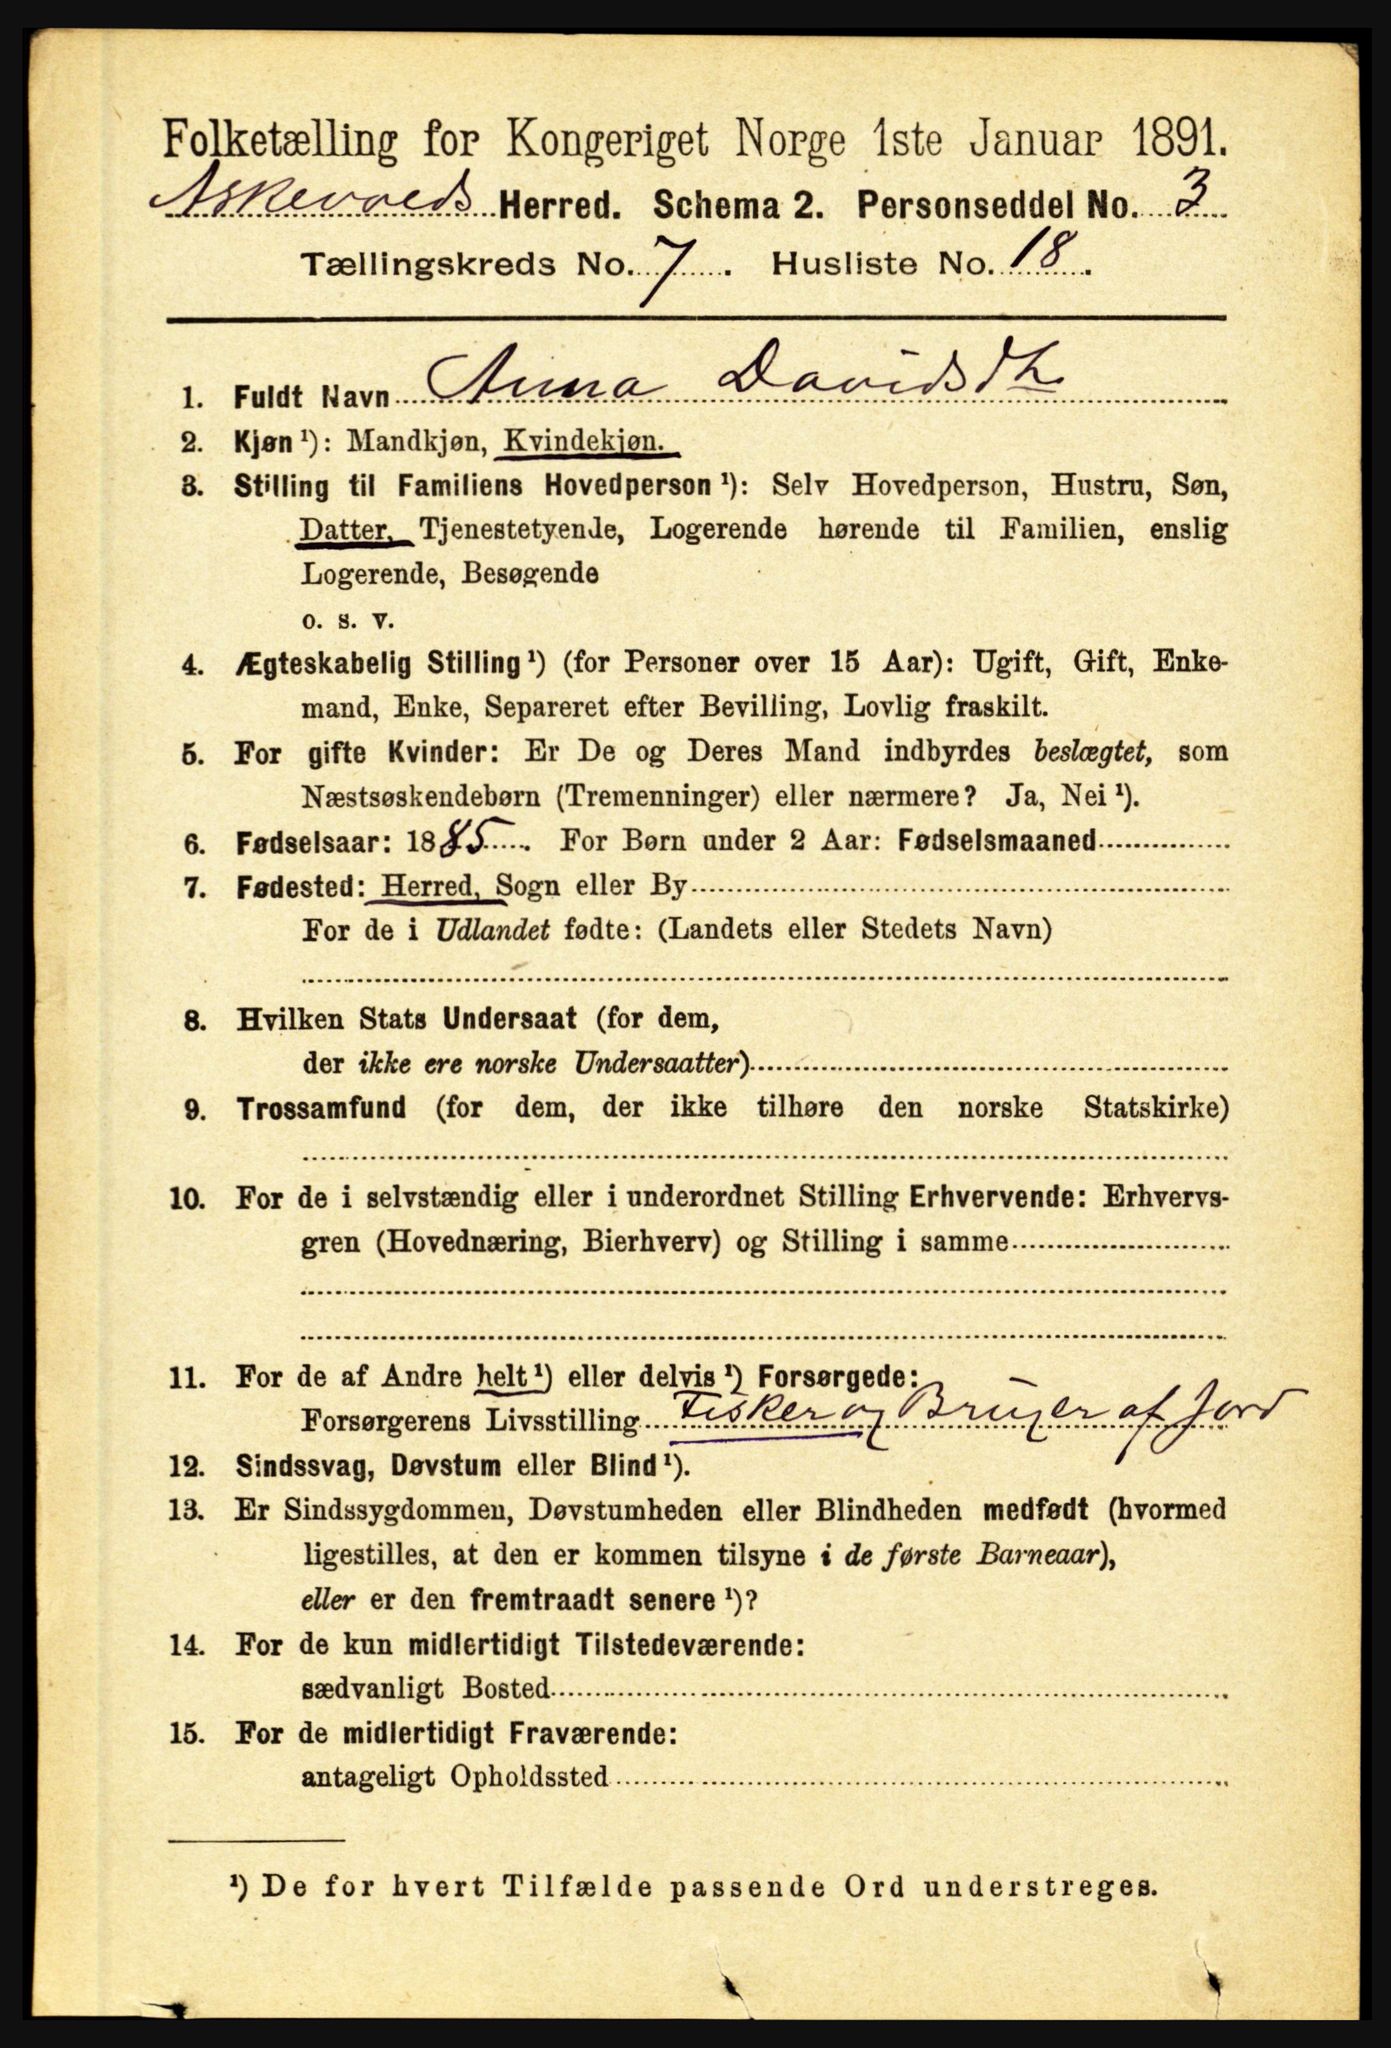 Folketælling for Kongeriget Norge 1ste Januar 1891.
Askevolds Herred. Schema 2. Personseddel No. 3
Tællingskreds No. 7. Husliste No. 18.
1. Fuldt Navn Anna Davidsdtr
2. Kjøn ¹): Mandkjøn, Kvindekjøn.
3. Stilling til Familiens Hovedperson ¹): Selv Hovedperson, Hustru, Søn,
Datter, Tjenestetyende, Logerende hørende til Familien, enslig
Logerende, Besøgende
o. s. v.
4. Ægteskabelig Stilling ¹) (for Personer over 15 Aar): Ugift, Gift, Enke-
mand, Enke, Separeret efter Bevilling, Lovlig fraskilt.
5. For gifte Kvinder: Er De og Deres Mand indbyrdes beslægtet, som
Næstsøskendebørn (Tremenninger) eller nærmere? Ja, Nei ¹).
6. Fødselsaar: 1885. For Børn under 2 Aar: Fødselsmaaned
7. Fødested: Herred, Sogn eller By
For de i Udlandet fødte: (Landets eller Stedets Navn)
8. Hvilken Stats Undersaat (for dem,
der ikke ere norske Undersaatter)
9. Trossamfund (for dem, der ikke tilhøre den norske Statskirke)
10. For de i selvstændig eller i underordnet Stilling Erhvervende: Erhvervs-
gren (Hovednæring, Bierhverv) og Stilling i samme
11. For de af Andre helt ¹) eller delvis ¹) Forsørgede:
Forsørgerens Livsstilling Fisker og Bruger af Jord
12. Sindssvag, Døvstum eller Blind ¹).
13. Er Sindssygdommen, Døvstumheden eller Blindheden medfødt (hvormed
ligestilles, at den er kommen tilsyne i de første Barneaar),
eller er den fremtraadt senere ¹)?
14. For de kun midlertidigt Tilstedeværende:
sædvanligt Bosted
15. For de midlertidigt Fraværende:
antageligt Opholdssted
¹) De for hvert Tilfælde passende Ord understreges.